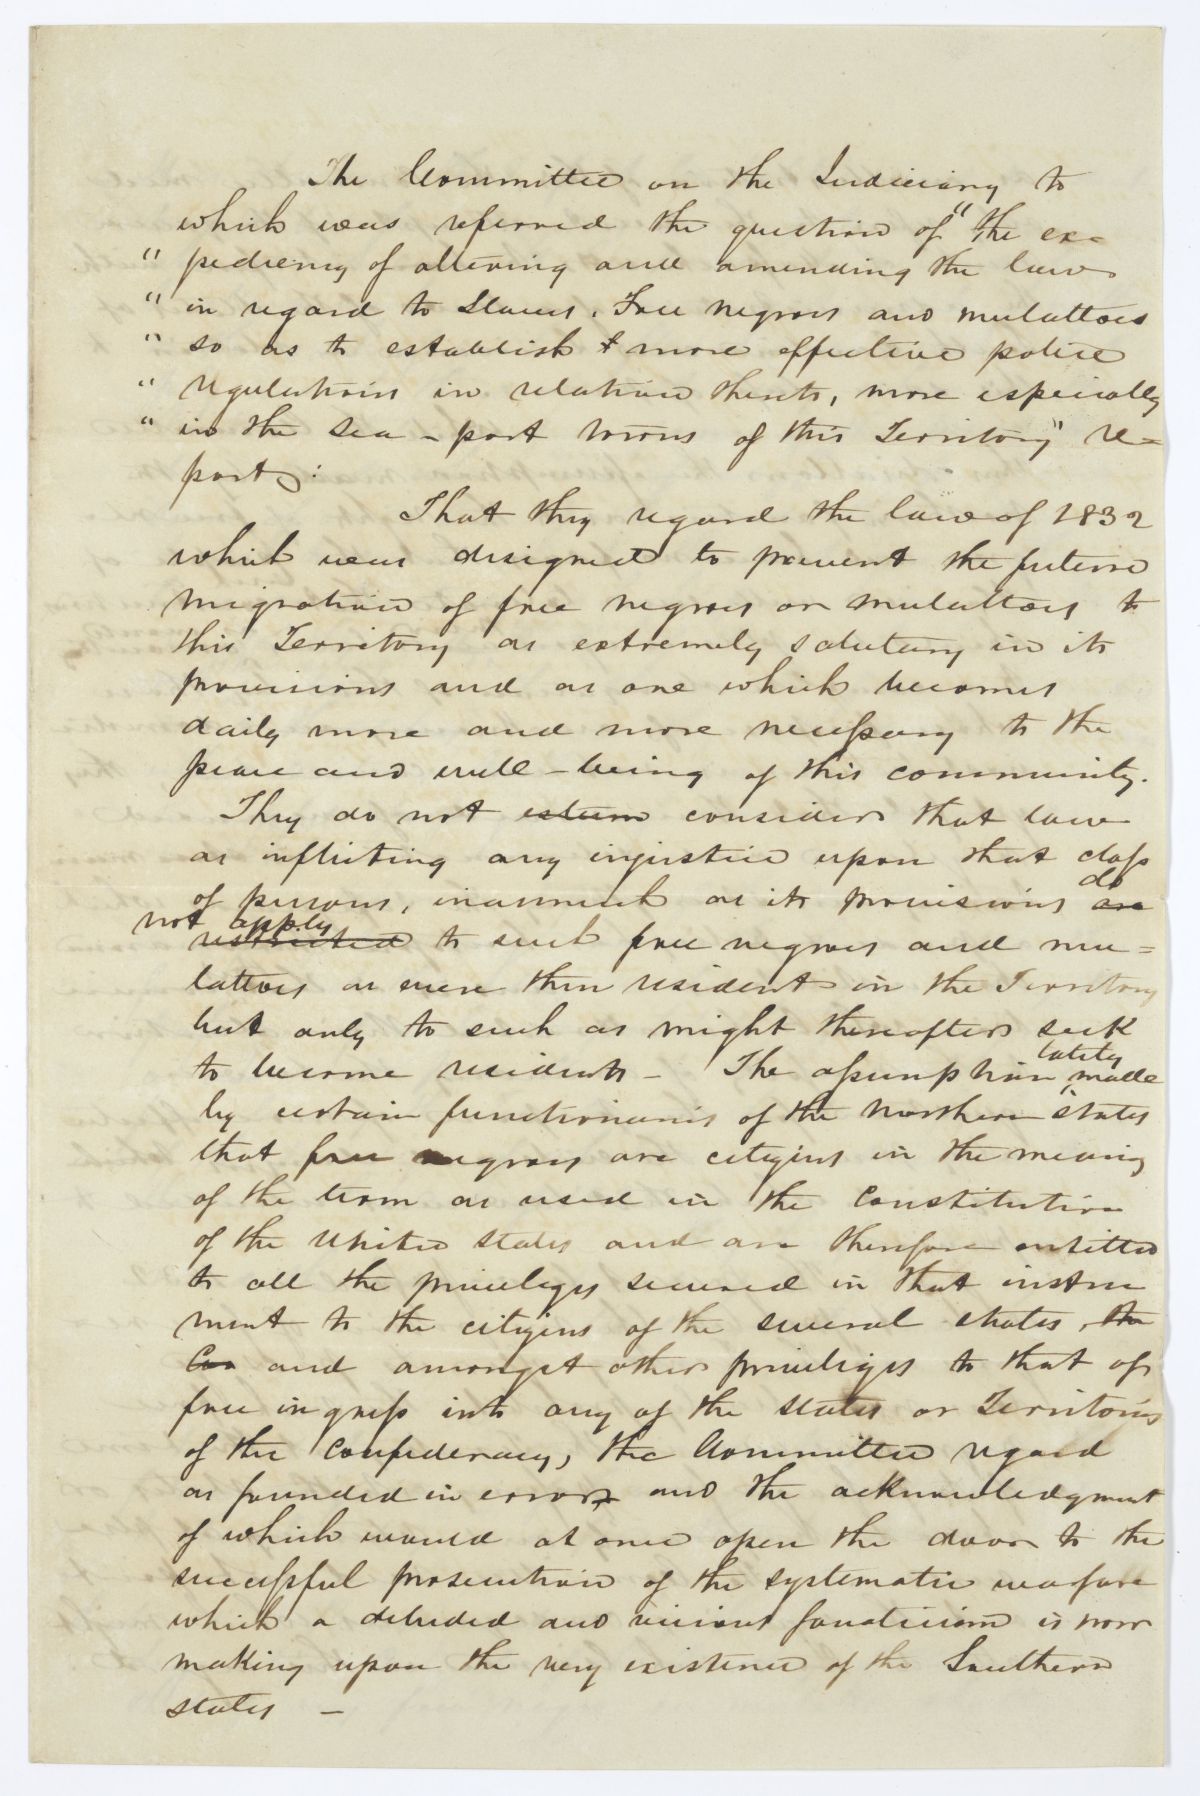 The Committee on the Judiciary to
which was referred the question of "the ex=
" pediency of altering and amending the laws
" in regard to Slaves, Free negroes and mulattoes
" so as to establish & more effective police
" regulations in relation thereto, more especially
" in the sea-port towns of this Territory" re=
port:
That they regard the law of 1832
which was designed to prevent the future
migration of free negroes or mulattoes to
this Territory as extremely salutary in its
provisions and as one which becomes
daily more and more necessary to the
peace and well-being of this community.
They do not esteem consider that law
as inflicting any injustice upon that class
of persons, inasmuch as its provisions are do
not apply
restricted to such free negroes and mu=
lattoes as were then resident in the Territory
but only to such as might thereafter seek
to become residents - The assumption lately made
by certain functionaries of the Northern states
that free negroes are citizens in the meaning
of the term as used in the Constitution
of the United States and are therefore entitled
to all the privileges secured in that instru
ment to the citizens of the several states, the
Con and amongst other privileges to that of
free ingress into any of the states or Territories
of the Confederacy, the Committee regard
as founded in error, and the acknowledgment
of which would at once open the door to the
successful prosecution of the systematic warfare
which a deluded and vicious fanaticism is now
making upon the very existence of the Southern
states -